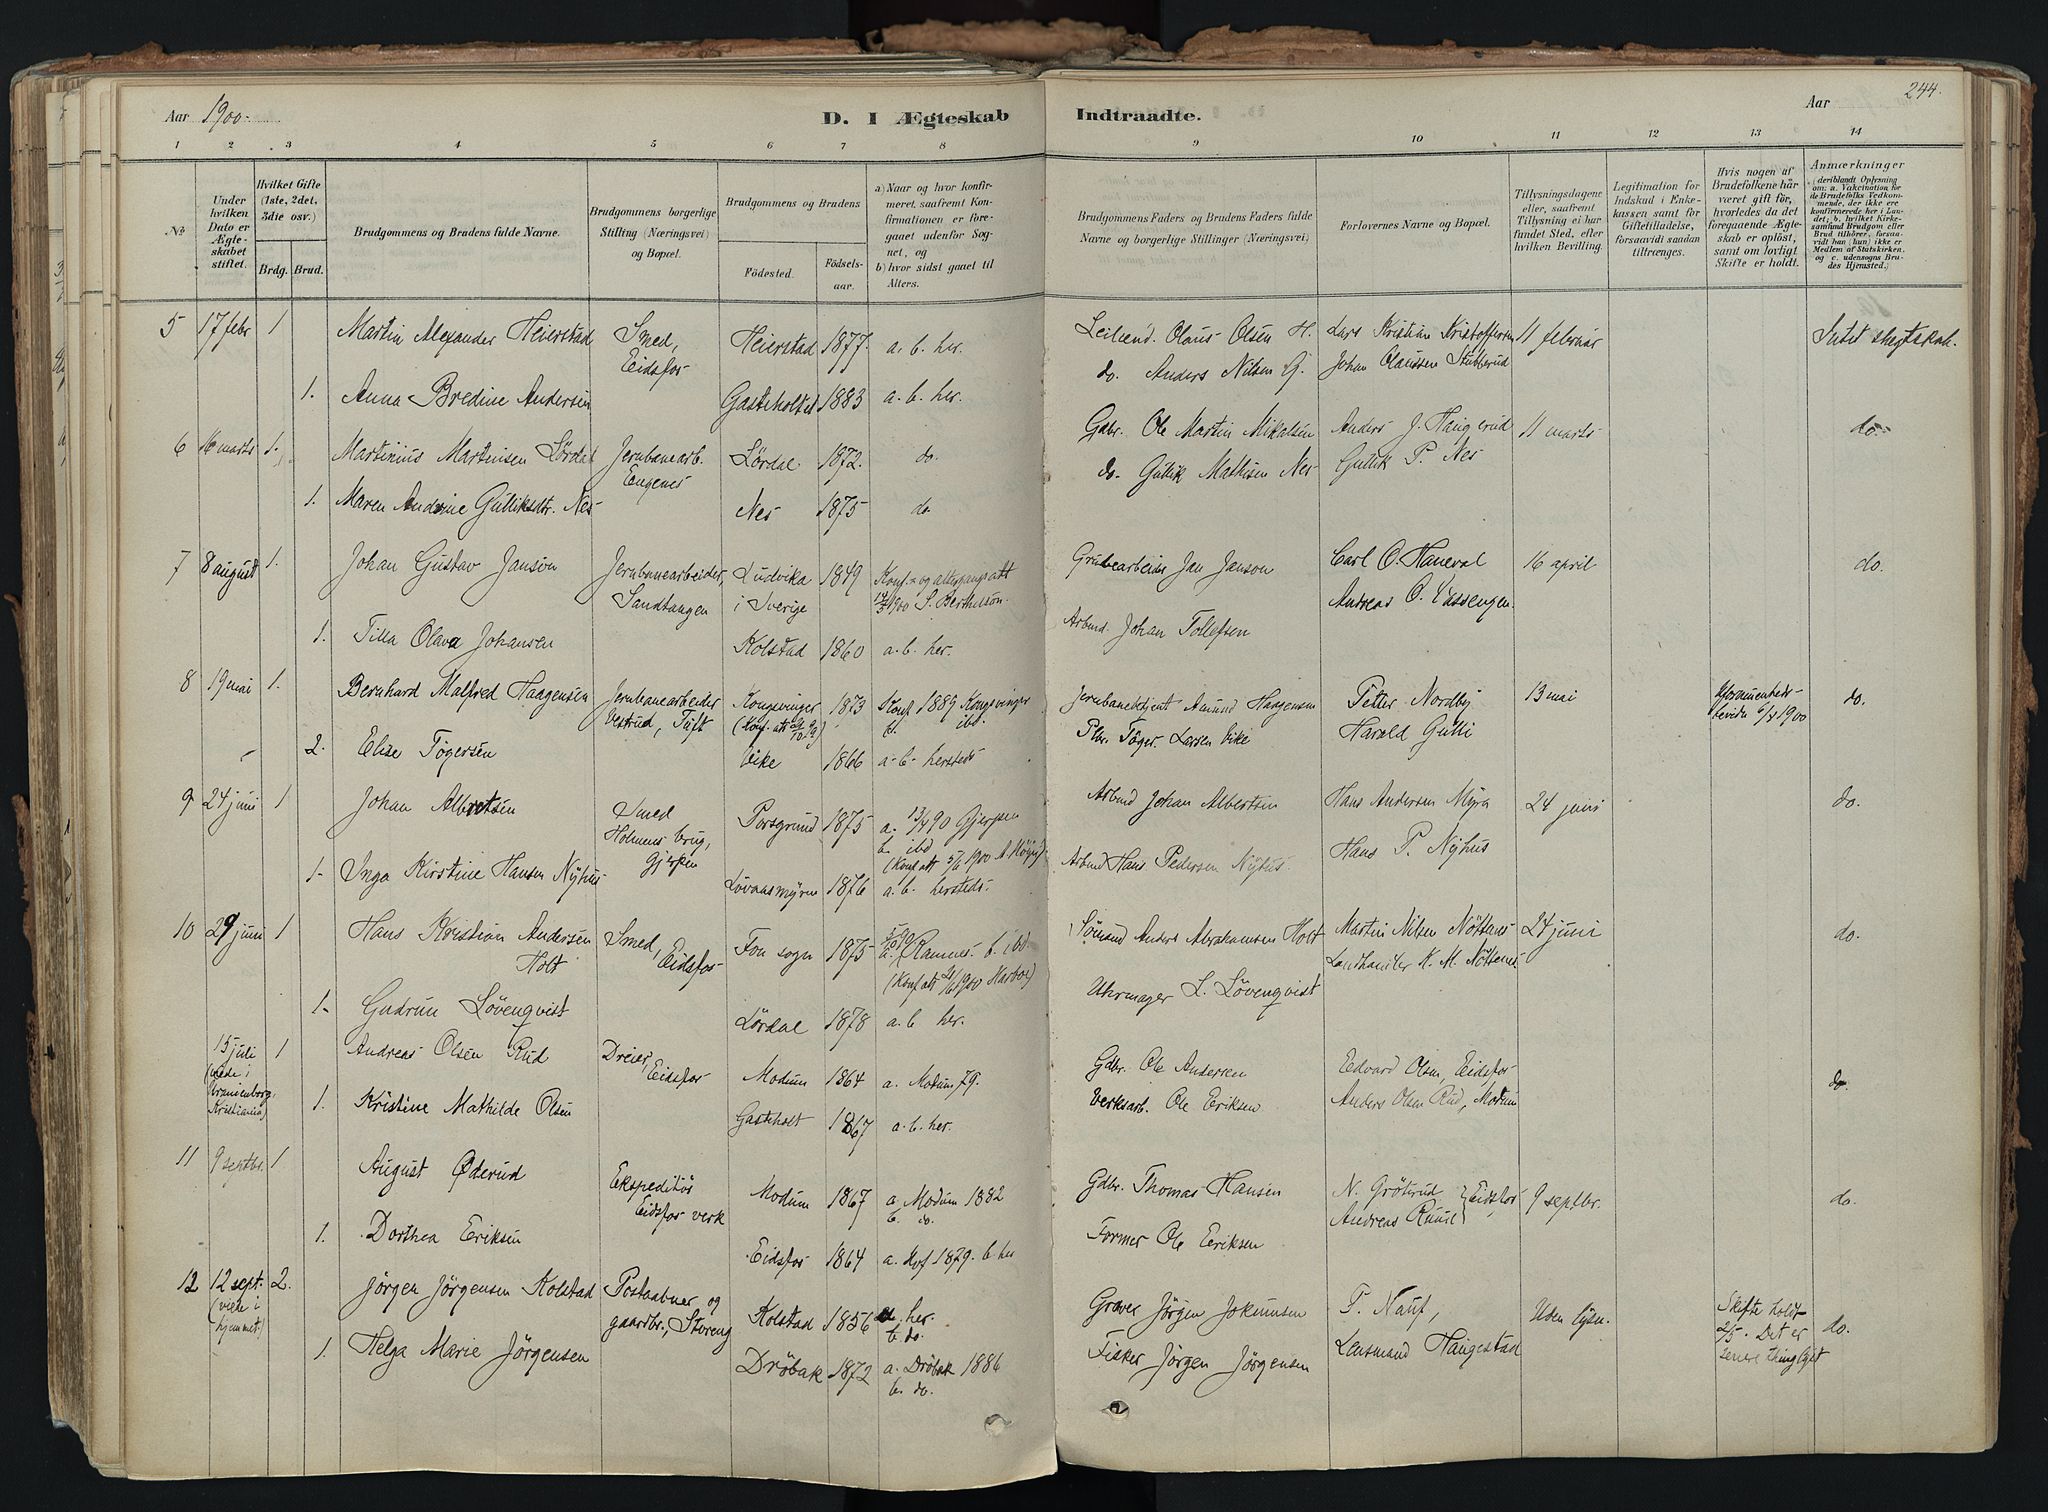 Aar 1900.
D. I Ægteskab
Indtraadte.
Aar
244.
1 2 3 4 5 6 7 8 9 10 11 12 13 14
No
Under hvilken Dato er Ægteskabet stiftet.
Hvilket Gifte (1ste, 2det, 3die osv.)
Brdg. Brud.
Brudgommens og Brudens fulde Navne.
Brudgommens borgerlige Stilling (Næringsvei) og Bopæl.
Brudgommens og Brudens
Födested.
Födselsaar.
a) Naar og hvor konfirmeret, saafremt Konfirmationen er foregaaet udenfor Sognet, og
b) hvor sidst gaaet til Alters.
Brudgommens Faders og Brudens Faders fulde Navne og borgerlige Stillinger (Næringsvei).
Forlovernes Navne og Bopæl.
Tillysningsdagene eller, saafremt Tillysning ei har fundet Sted, efter hvilken Bevilling.
Legitimation for Indskud i Enkekassen samt for Giftetilladelse, forsaavidt saadan tiltrænges.
Hvis nogen af Brudefolkene har været gift för, hvorledes da det foregaaende Ægteskab er oplöst, samt om lovligt Skifte er holdt.
Anmærkninger (deriblandt Oplysning om: a. Vakcination for de Brudefolks Vedkommende, der ikke ere konfirmerede her i Landet; b. hvilket Kirkesamfund Brudgom eller Brud tilhörer, forsaavidt han (hun) ikke er Medlem af Statskirken, og c. udensogns Brudes Hjemsted.)
5 17 febr 1 Martin Alexander Heierstad Smed, Eidsfos Heierstad 1877. a. b. her. Leilend. Olaus Olsen H. Lars Kristian Kristoffersen 11 februar Intet slegtskab.
1. Anna Bredine Andersen Gasteholtet 1883 a. b. her. do. Anders Nilsen G. Johan Olaussen Stubberud
6 16 marts 1. Martinius Martinsen Lördal Jernbanearb. Engenes Lördal 1872. do. Gdbr. Ole Martin Mikalsen Anders J. Haugerud 11 marts do.
1. Maren Andrine Gulliksdtr. Nes Nes 1875 do. do. Gullik Mathisen Nes Gullik P. Nes
7 8 august 1. Johan Gustav Janson Jernbanearbeider, Sandtangen Ludvika i Sverige 1849 Konf.- og altergangsatt 1900 S. Berthelson. Grubearbeider Jan Janson Carl O. Haneval 16 april do.
1. Tilla Olava Johansen Kolstad 1860 a. b. her. Arbmd. Johan Tollefsen Andreas O. Vassengen.
8 19 mai 1. Bernhard Malfred Haagensen Jernbanearbeider Vestrud, Tuft Kongsvinger 1873 Konf 1889 Kongsvinger b. ibd Jernbanebetjent Amund Haagensen Petter Nordby 13 mai 6/3 1900 do.
2. Elise Tögersen Vike 1866 a-b- hersteds Plbr. Töger Larsen Vike Harald Gulli
9 24 juni 1 Johan Albretsen Smed Holmens brug, Gjerpen Porsgrund 1875 a. 13/4 90 Gjerpen b. ibd Arbmd Johan Albertsen Hans Andersen Myra 24 juni do.
1. Inga Kirstine Hansen Nyhus Lövaasmyrene 1876 a. b. hersteds. Arbmd Hans Pedersen Nyhus. Hans P. Nyhus
10 29 juni 1 Hans Kristian Andersen Holt Smed, Eidsfos Fon sogn 1875 a. Ramnes. b. ibd Sömand Anders Abrahamsen Holt Martin Nilsen Nöttenes 24 juni do.
1. Gudrun Lövenqvist Lördal 1878 a. b her. Uhrmager L. Lövenqvist Landhandler K. M. Nöttenes
15 juli (viede i Uranienborg, Kristiania) 1 Andreas Olsen Rud Dreier, Eidsfos Modum 1864 a. Modum 79. Gdbr. Ole Andersen Edvard Olsen, Eidsfos do.
1. Kristine Mathilde Olsen Gasteholt 1867 a. b. her. Verksarb. Ole Eriksen Anders Olsen Rud, Modum
11 9 septbr. 1 August Öderud Ekspeditör Eidsfos verk Modum 1867 a. Modum 1882 b. do. Gdbr. Thomas Hansen N. Grötterud Andreas Ruud } Eidsfos 9 septbr. do.
1. Dorthea Eriksen Eidsfos 1864 a. Hof 1879. b. her Former Ole Eriksen
12 12 sept. (viede i hjemmet) 2. Jörgen Jörgensen Kolstad Postaabner og gaardbr., Storeng Kolstad 1856 a. her. b. do. Graver Jörgen Jokumsen T. Nauf, Uden lysn. Skifte holdt 2/5. Det er senere thinglyst do.
1. Helga Marie Jörgensen Dröbak 1872 a. Dröbak 1886 b. do. Fisker Jörgen Jörgensen Lensmand Haugestad